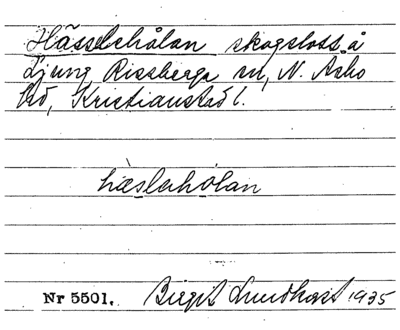 Hässlehålan skogslott å
Ljung Rissberga sn, N. Åsbo
hd, Kristianstad l.
hæ̀slahólan
Nr 5501. Birgit Lundkvist 1935